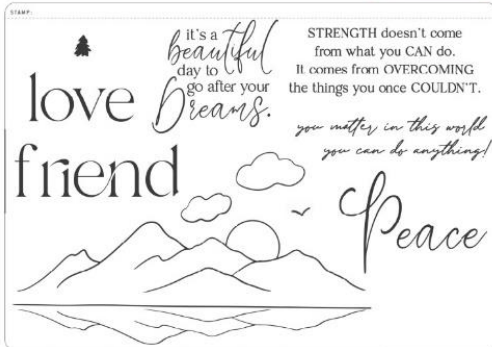 STAMP:
love
friend
it's a
beautiful
day to
go after your
Dreams.
STRENGTH doesn't come
from what you CAN do.
It comes from OVERCOMING
the things you once COULDN'T.
you matter in this world
you can do anything!
Peace